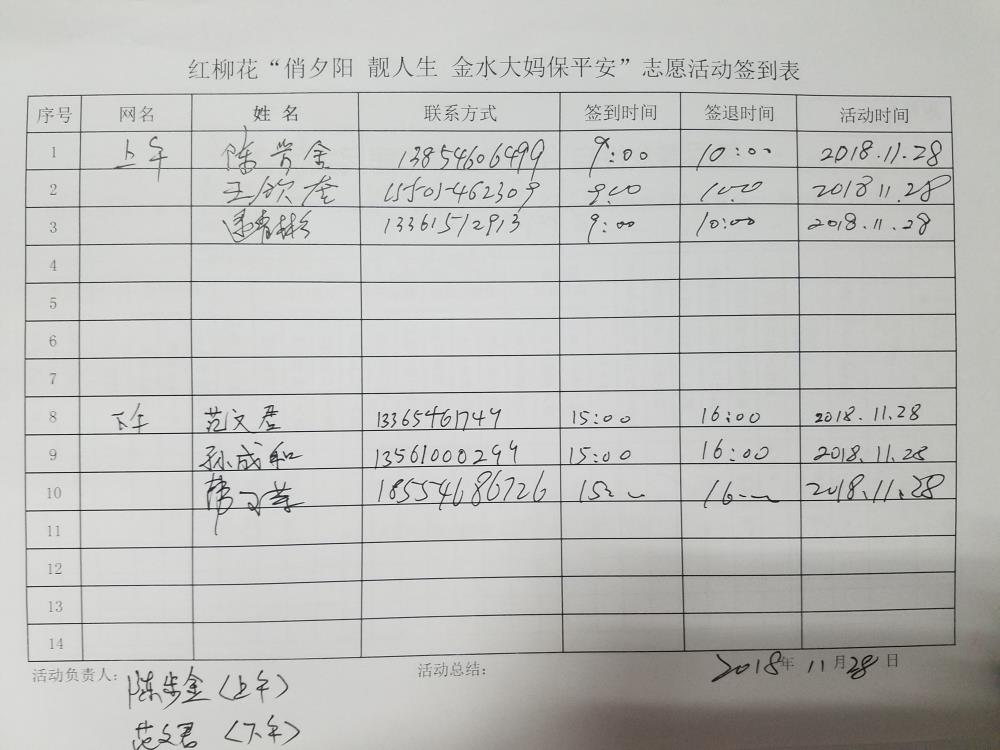 红柳花“俏夕阳 靓人生 金水大妈保平安”志愿活动签到表
序号 网名 姓名 联系方式 签到时间 签退时间 活动时间
1 上午 陈步金 13854606499 9:00 10:00 2018.11.28
2 王钦奎 15501462309 9:00 10:00 2018 11.28
3 13361512913 9:00 10:00 2018.11.28
4
5
6
7
8 下午 范文君 13365461749 15:00 16:00 2018.11.28
9 孙成和 13561000299 15:00 16:00 2018.11.28
10 18554686726 15 16 2018.11.28
11
12
13
14
活动负责人: 活动总结: 2018年 11月28日
陈步金(上午)
范文君(下午)